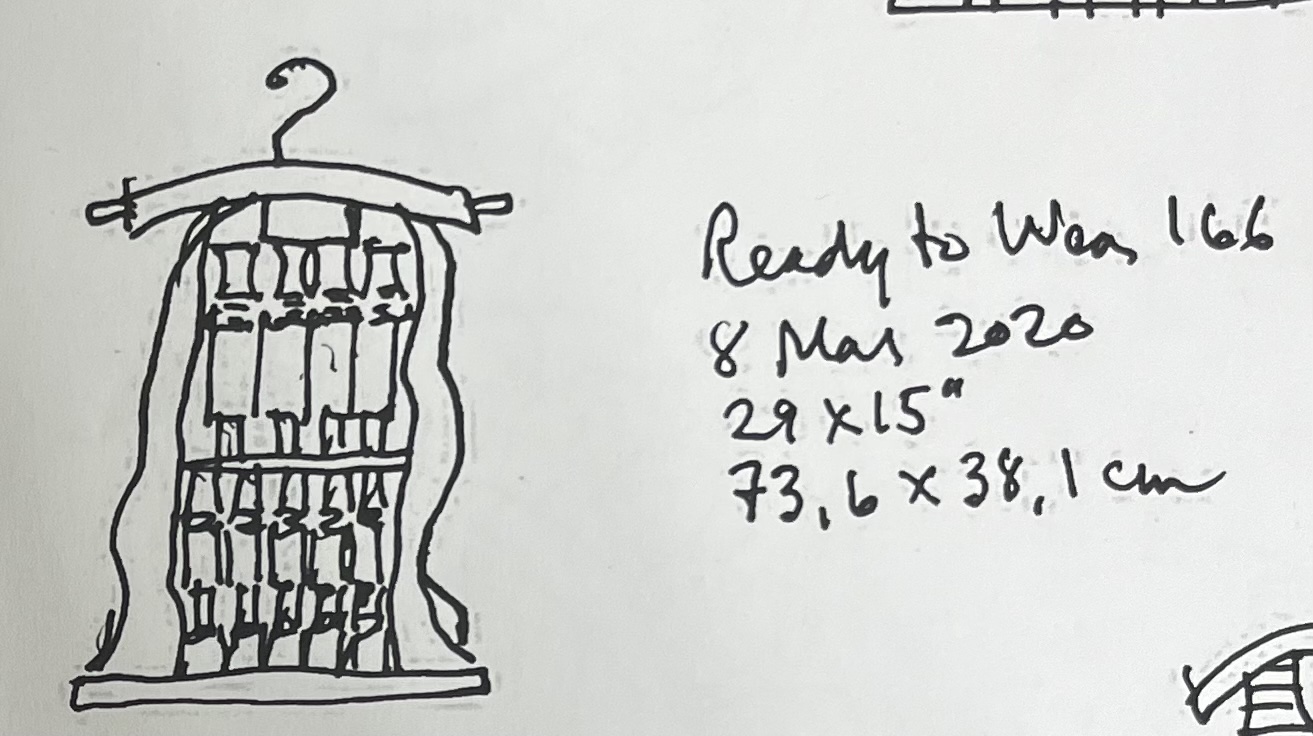 Ready to Wear 166
8 Mar 2020
29 x 15"
73,6 x 38,1 cm